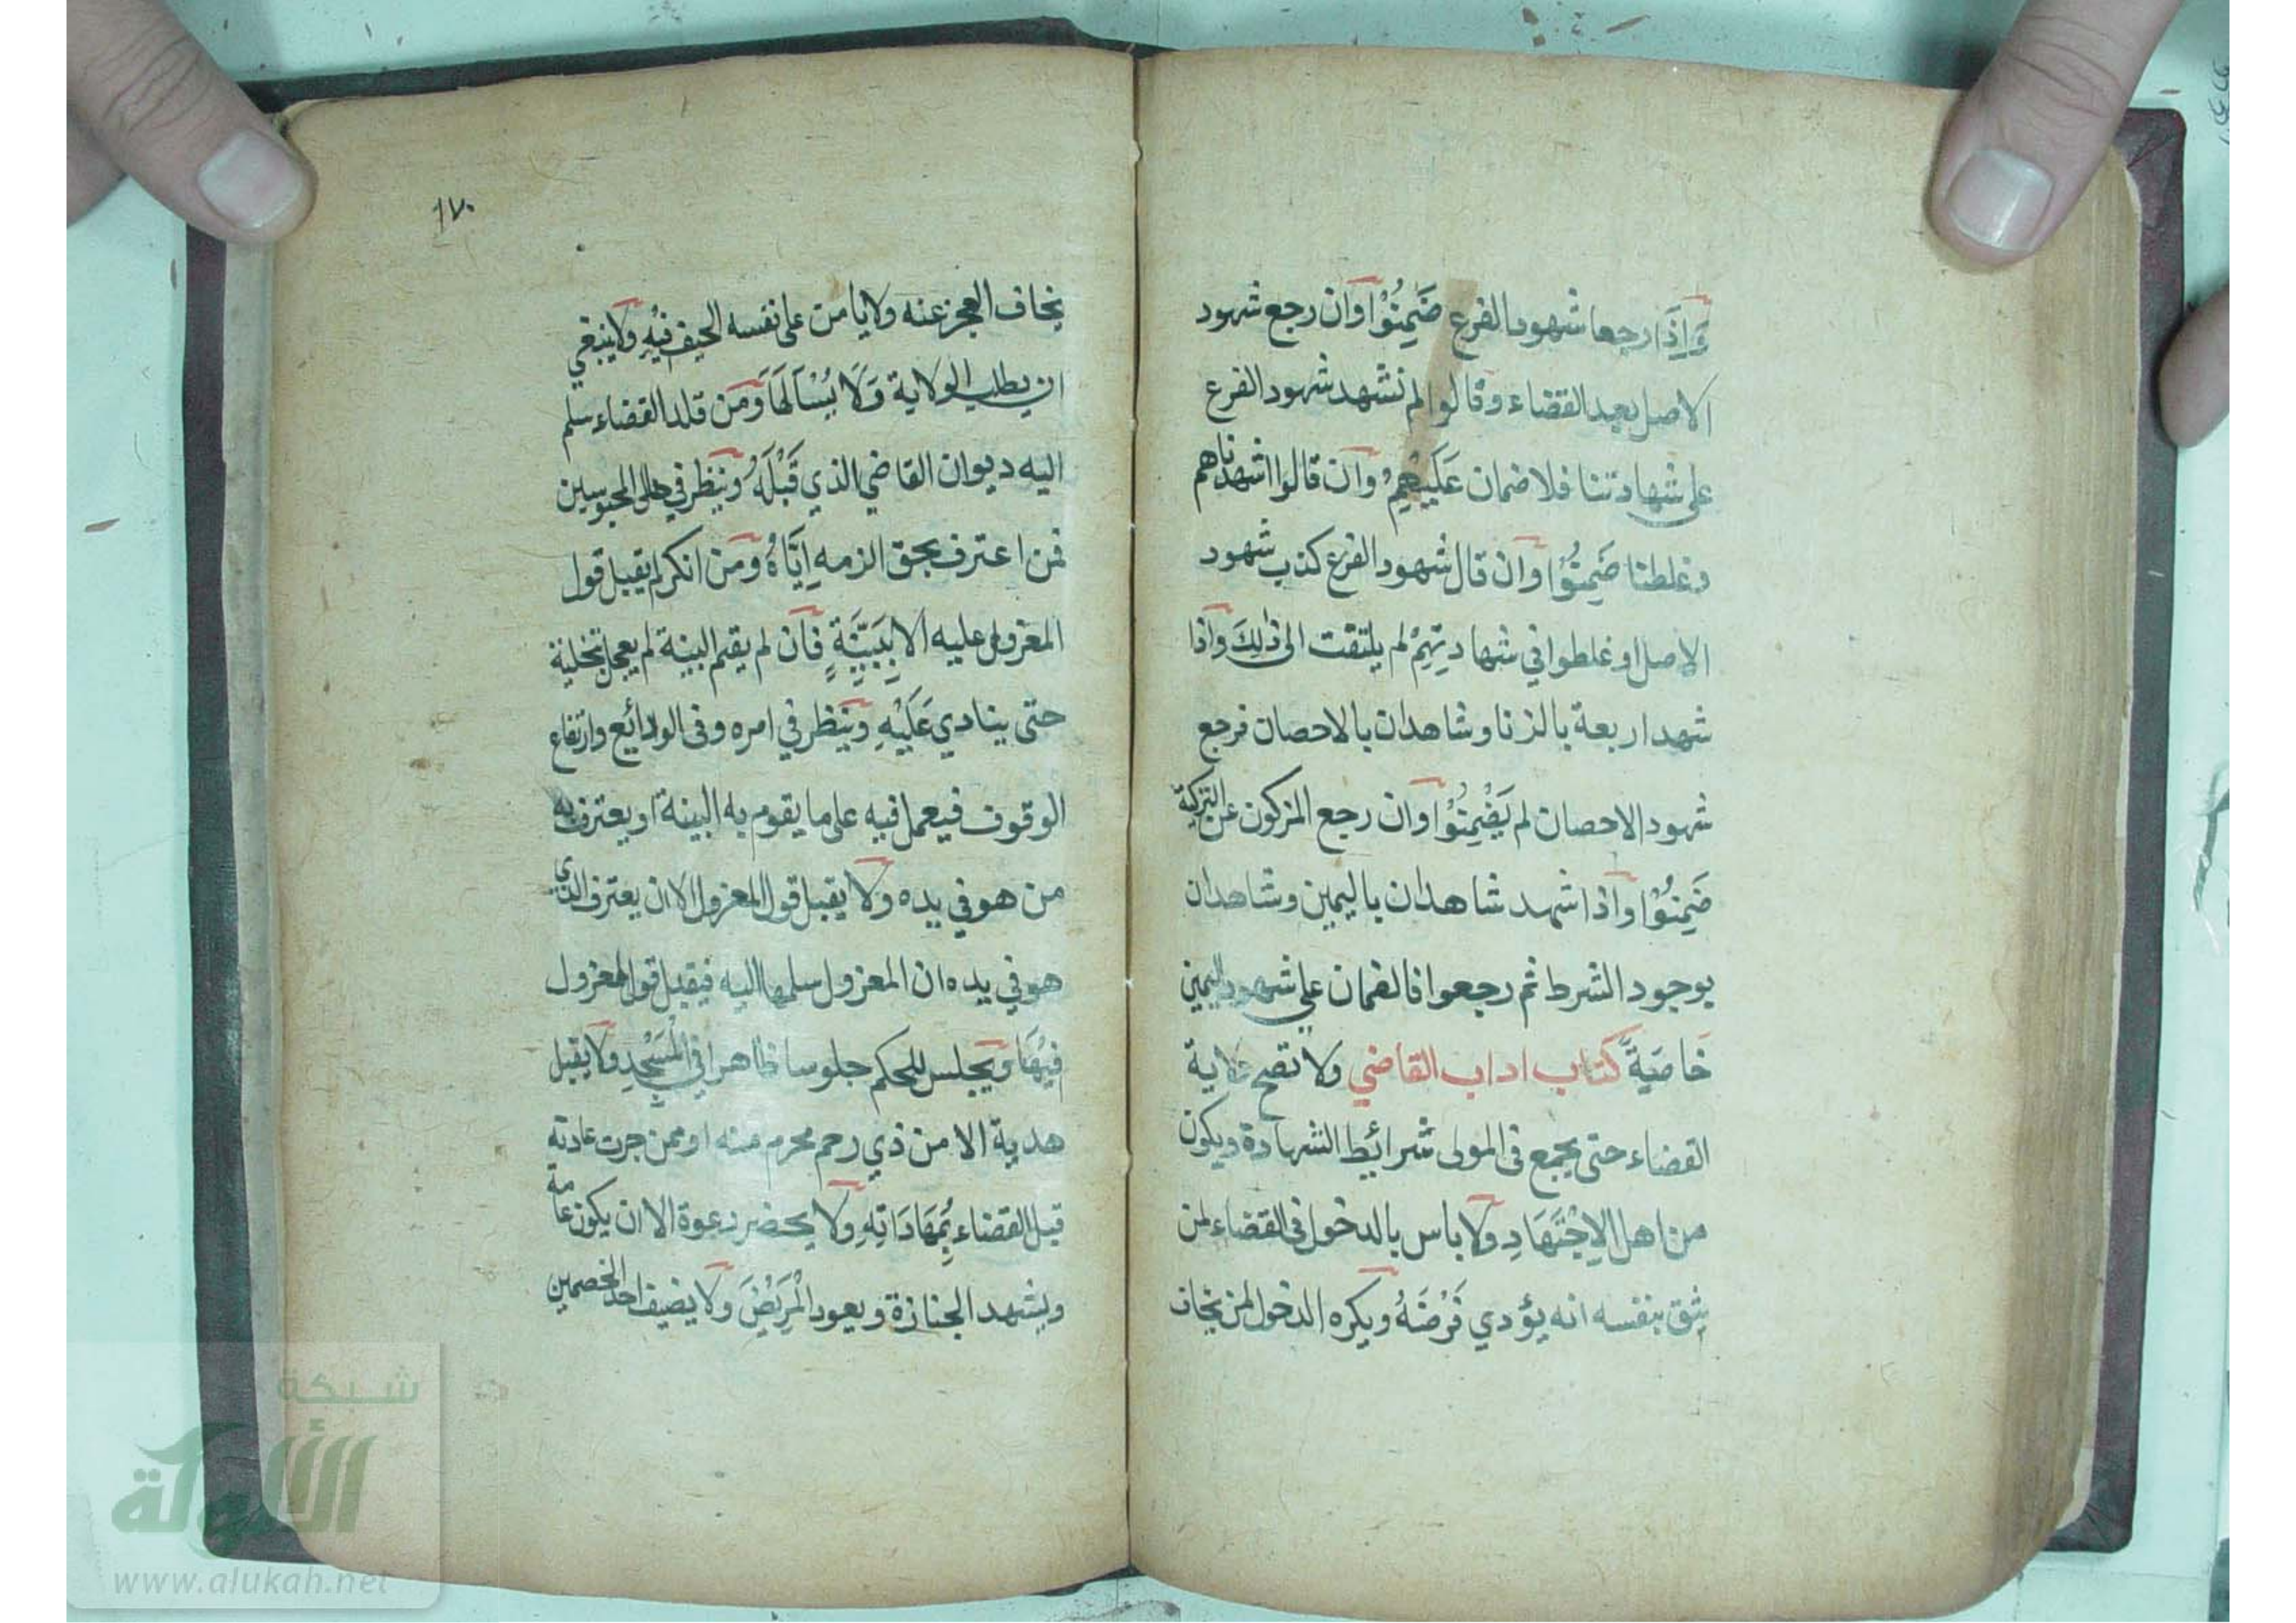 وَاِذَا رجعا شهود الفرع ضَمِنُوْا وان رجع شهود
الاصل بعد القضاء وقالوا لم نشهد شهود الفرع
على شهادتنا فلا ضمان عَلَيْهِمْ وان قالوا اشهدناهم
وغلطنا ضَمِنُوْا وان قال شهود الفرع كذب شهود
الاصل او غلطوا في شهادتِهِمْ لم يلتفت الى ذٰلِكَ واذا
شهد اربعة بالزنا وشاهدان بالاحصان فرجع
شهود الاحصان لم يَضْمِنُوْا وان رجع المزكون عن التزكية
ضَمِنُوْا واذا شهد شاهدان باليمين وشاهدان
بوجود الشرط ثم رجعوا فالضمان على شهود اليمين
خَاصَّةً كتاب اداب القاضي ولا تصح ولاية
القضاء حتى يجمع فى المولى شرائيط الشهادة ويكون
من اهل الاِجْتِهَادِ ولا باس بالدخول فى القضاء لمن
يثق بنفسه انه يؤدي فَرْضَهُ ويكره الدخول لمن يخاف
١٧٠
يخاف العجز عنه ولا يامن على نفسه الحيف فيْهِ ولا ينبغي
ان يطلب الولاية وَلَا يُسْاَلَهَا وَمَن قلد القضاء سلم
اليه ديوان القاضي الذي قَبْلَهُ وينظر في حال المحبوسين
فمن اعترف بحق الزمه اِيَّاهُ ومن انكر لم يقبل قول
المعزول عليه الا بِبَيِّنَةٍ فان لم يقم البينة لم يعجل بتخلية
حتى ينادي عَلَيْهِ وينظر في امره وفى الودائع وارتفاع
الوقوف فيعمل فيه على ما يقوم به البينة او يعترف به
من هو في يده ولا يقبل قول المعزول الا ان يعترف الذي
هو في يده ان المعزول سلمها اليه فيقبل قول المعزول
فيْهَا ويجلس للحكم جلوسا ظاهرا في الْمَسْجِدِ ولا يقبل
هدية الا من ذي رحم محرم منه او ممن جرت عادته
قبل القضاء بِمُهَادَاتِهِ ولا يحضر دعوة الا ان يكون عامة
ويشهد الجنازة ويعود الْمَرِيْضَ ولا يضيف احد الخصمين
شبكة
الألوكة
www.alukah.net